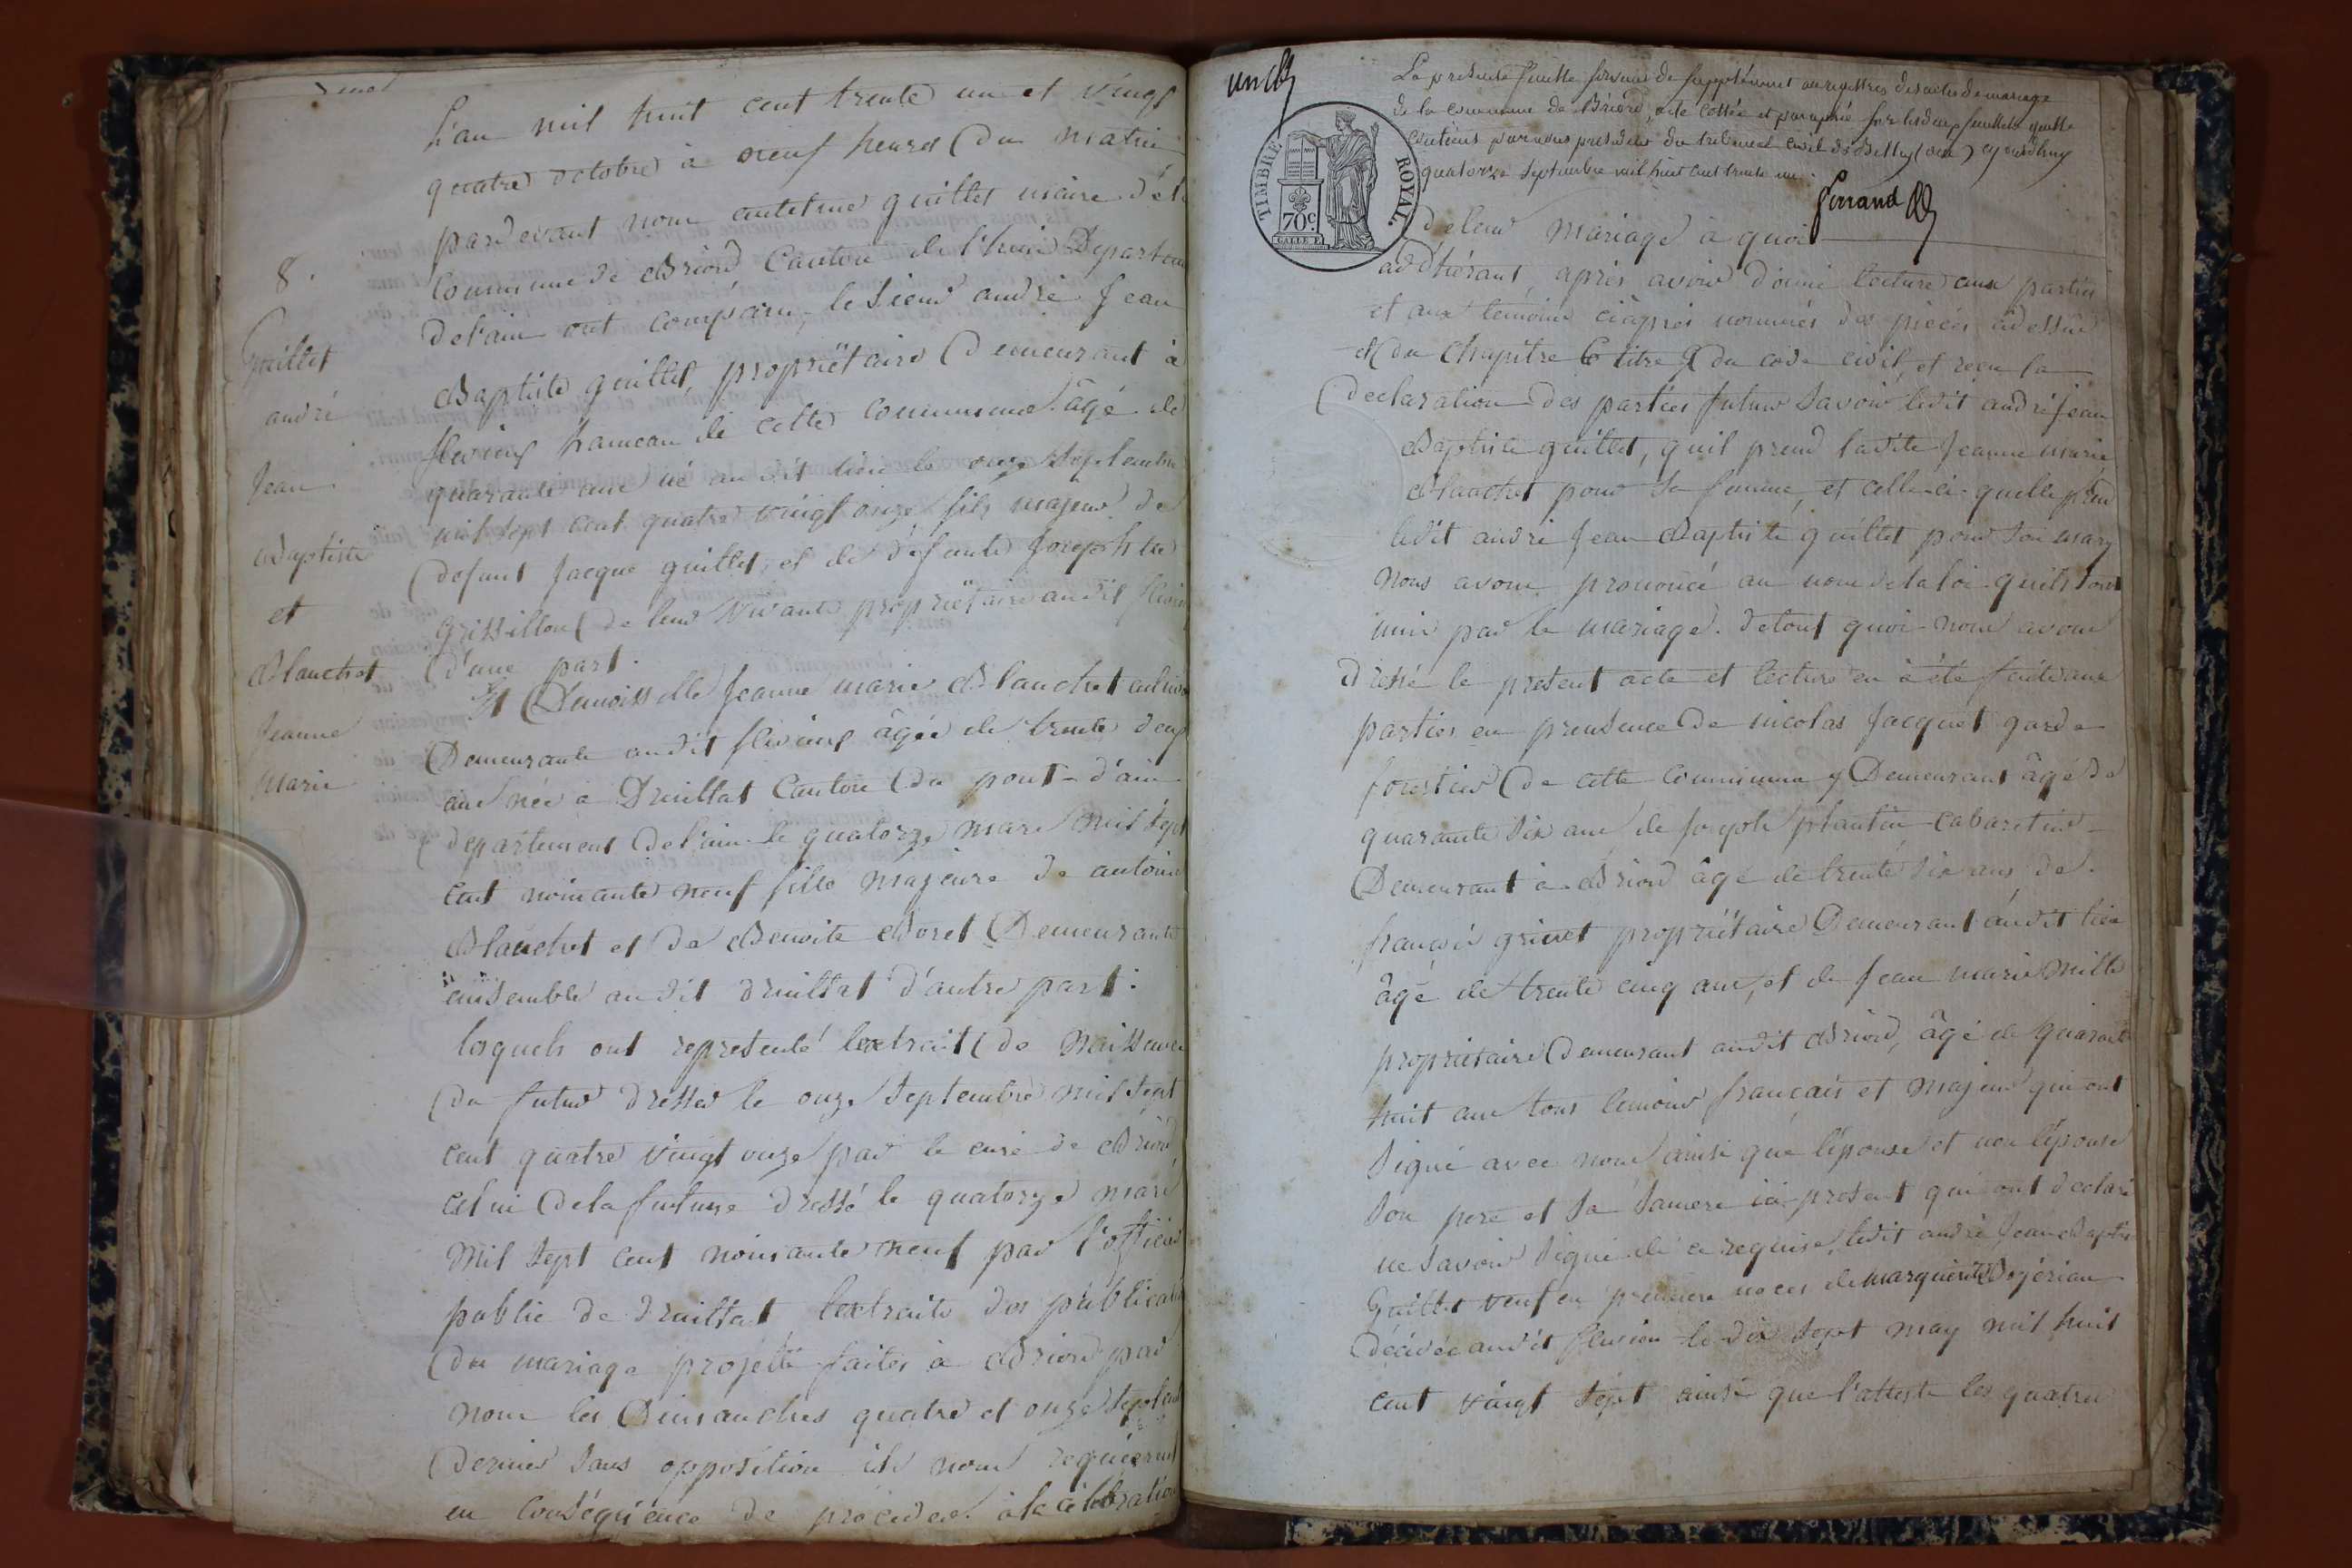 8.
Guillet
andré
Jean
Baptiste
et
Blanchet
Jeanne
Marie
L'an mil huit cent trente un et vingt
quatre octobre à neuf heures du matin
pardevant nous antelme guillet maire de la
Commune de Briord Canton de l'huis Departem
de l'ain ont comparu, le Sieur andré Jean
Baptiste guillet, propriètaire Demeurant à
flevieux hameau de cette commune âgé de
quarante ans né au dit lieu le onze Septembre
mil sept cent quatre vingt onze fils majeur de
defunt Jacque guillet, et de défunte Josephte
grissillon de leur vivants propriètaire audit
d'une part.
Et Demoisselle Jeanne marie Blanchet
Demeurante audit flevieux âgée de trente deux
ans née a Druillat Canton du pont-d'ain
département de l'ain le quatorze mars mil sept
cent noinante neuf fille majeure de antoine
Blanchet et de Benoite Boret Demeurants
ensemble audit druillat d'autre part.
lesquels ont representé lextrait de Naissance
du futur dressé le onze Septembre mil sept
cent quatre vingt onze par le curé de Briord
celui de la future dressé le quatorze mars
mil sept cent noinante neuf par l'officier
public de druillat lextraits des publicat
du mariage projetté faites à Briord par
nous les Dimanches quatre et onze Septemb
dernier Sans opposition ils nous requièrent
en Conséquence de procéder à la célébration
La présente feuille servant de Supplément au registres des actes de mariage
de la commune de Briord, a été cottée et paraphée sur les deux feuillets quelle
contient par nous président du tribunal civil de Belley (ain) aujourd'huy
quatorze Septembre mil huit cent trente un.
Ferrand
TIMBRE ROYAL.
70c.
de leur mariage à quoi
addhérant, après avoir donné lecture aux parties
et aux temoins ciâprès nommés des pieces cidessus
et du Chapitre 6 titre 5 du code civil, et recu la
Declaration des parties futur Savoir ledit andré Jean
Baptiste guillet, quil prend ladite Jeanne marie
Blanchet pour Sa femme, et celle-ci quelle prend
ledit andré Jean Baptiste guillet pour Son mary
Nous avons prononcé au nom de la loi quils sont
unis par le mariage. de tout quoi nous avons
dressé le present acte et lecture en à été faite aux
parties en presence de nicolas Jacquet garde
forestier de cette Commune y Demeurant âgé de
quarante Six ans de Joseph plantin cabaretier
Demeurant à Briord âgé de trente Six ans de
françois grinet propriétaire Demeurant audit lieu
âgé de trente cinq ans, et de Jean marie Mille
propriétaire Demeurant audit Briord, âgé de quarante
huit ans tous temoins français et majeur qui ont
Signé avec nous ainsi que l'épouse et non l'épouse
Son pere et Sa Samere ici present qui ont declaré
ne Savoir Signé de ce requise, ledit andré Jean Baptis
Guillet veuf en premiere noces de marguerite
décédée audit flevieu le dix Sept may mil huit
cent vingt Sept ainsi que l'atteste les quatres